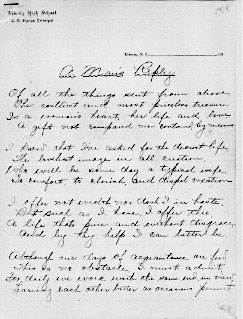 Liberty High School
Principal
A Man's Reply
Of all the things sent from above,
The costliest and most priceless treasure
Is a woman's heart, her life and love
A gift not compared nor contained by measure
I know that I've asked for the dearest life,
The loveliest image in all creation,
Who will be some day a typical wife,
To comfort, to cherish and dispel vexation
I offer not wealth nor do I in haste,
But such as I have I offer thee
A life that's pure and without disgrace,
And by thy help I can better be
Although our days of acquaintance are few
This is no obstacle I must admit,
For daily we work with the same end in view,
Learning each other better as occasions permit